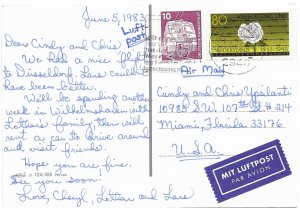 June 5, 1983
Dear Cindy and Chris,
We had a nice flight
to Düsseldorf. Lars couldn't
have been better.
We'll be spending another
week in Wilhelmshaven with
Lothar's family, then will
rent a car to drive around
and visit friends.
Hope you are fine.
See you soon!
Love, Cheryl, Lothar and Lars
124.185
Luft
post
10
80
Air Mail
Cindy and Chris Ypsilanti
10985 S.W. 107th St # 214
Miami, Florida 33176
U.S.A.
MIT LUFTPOST
PAR AVION